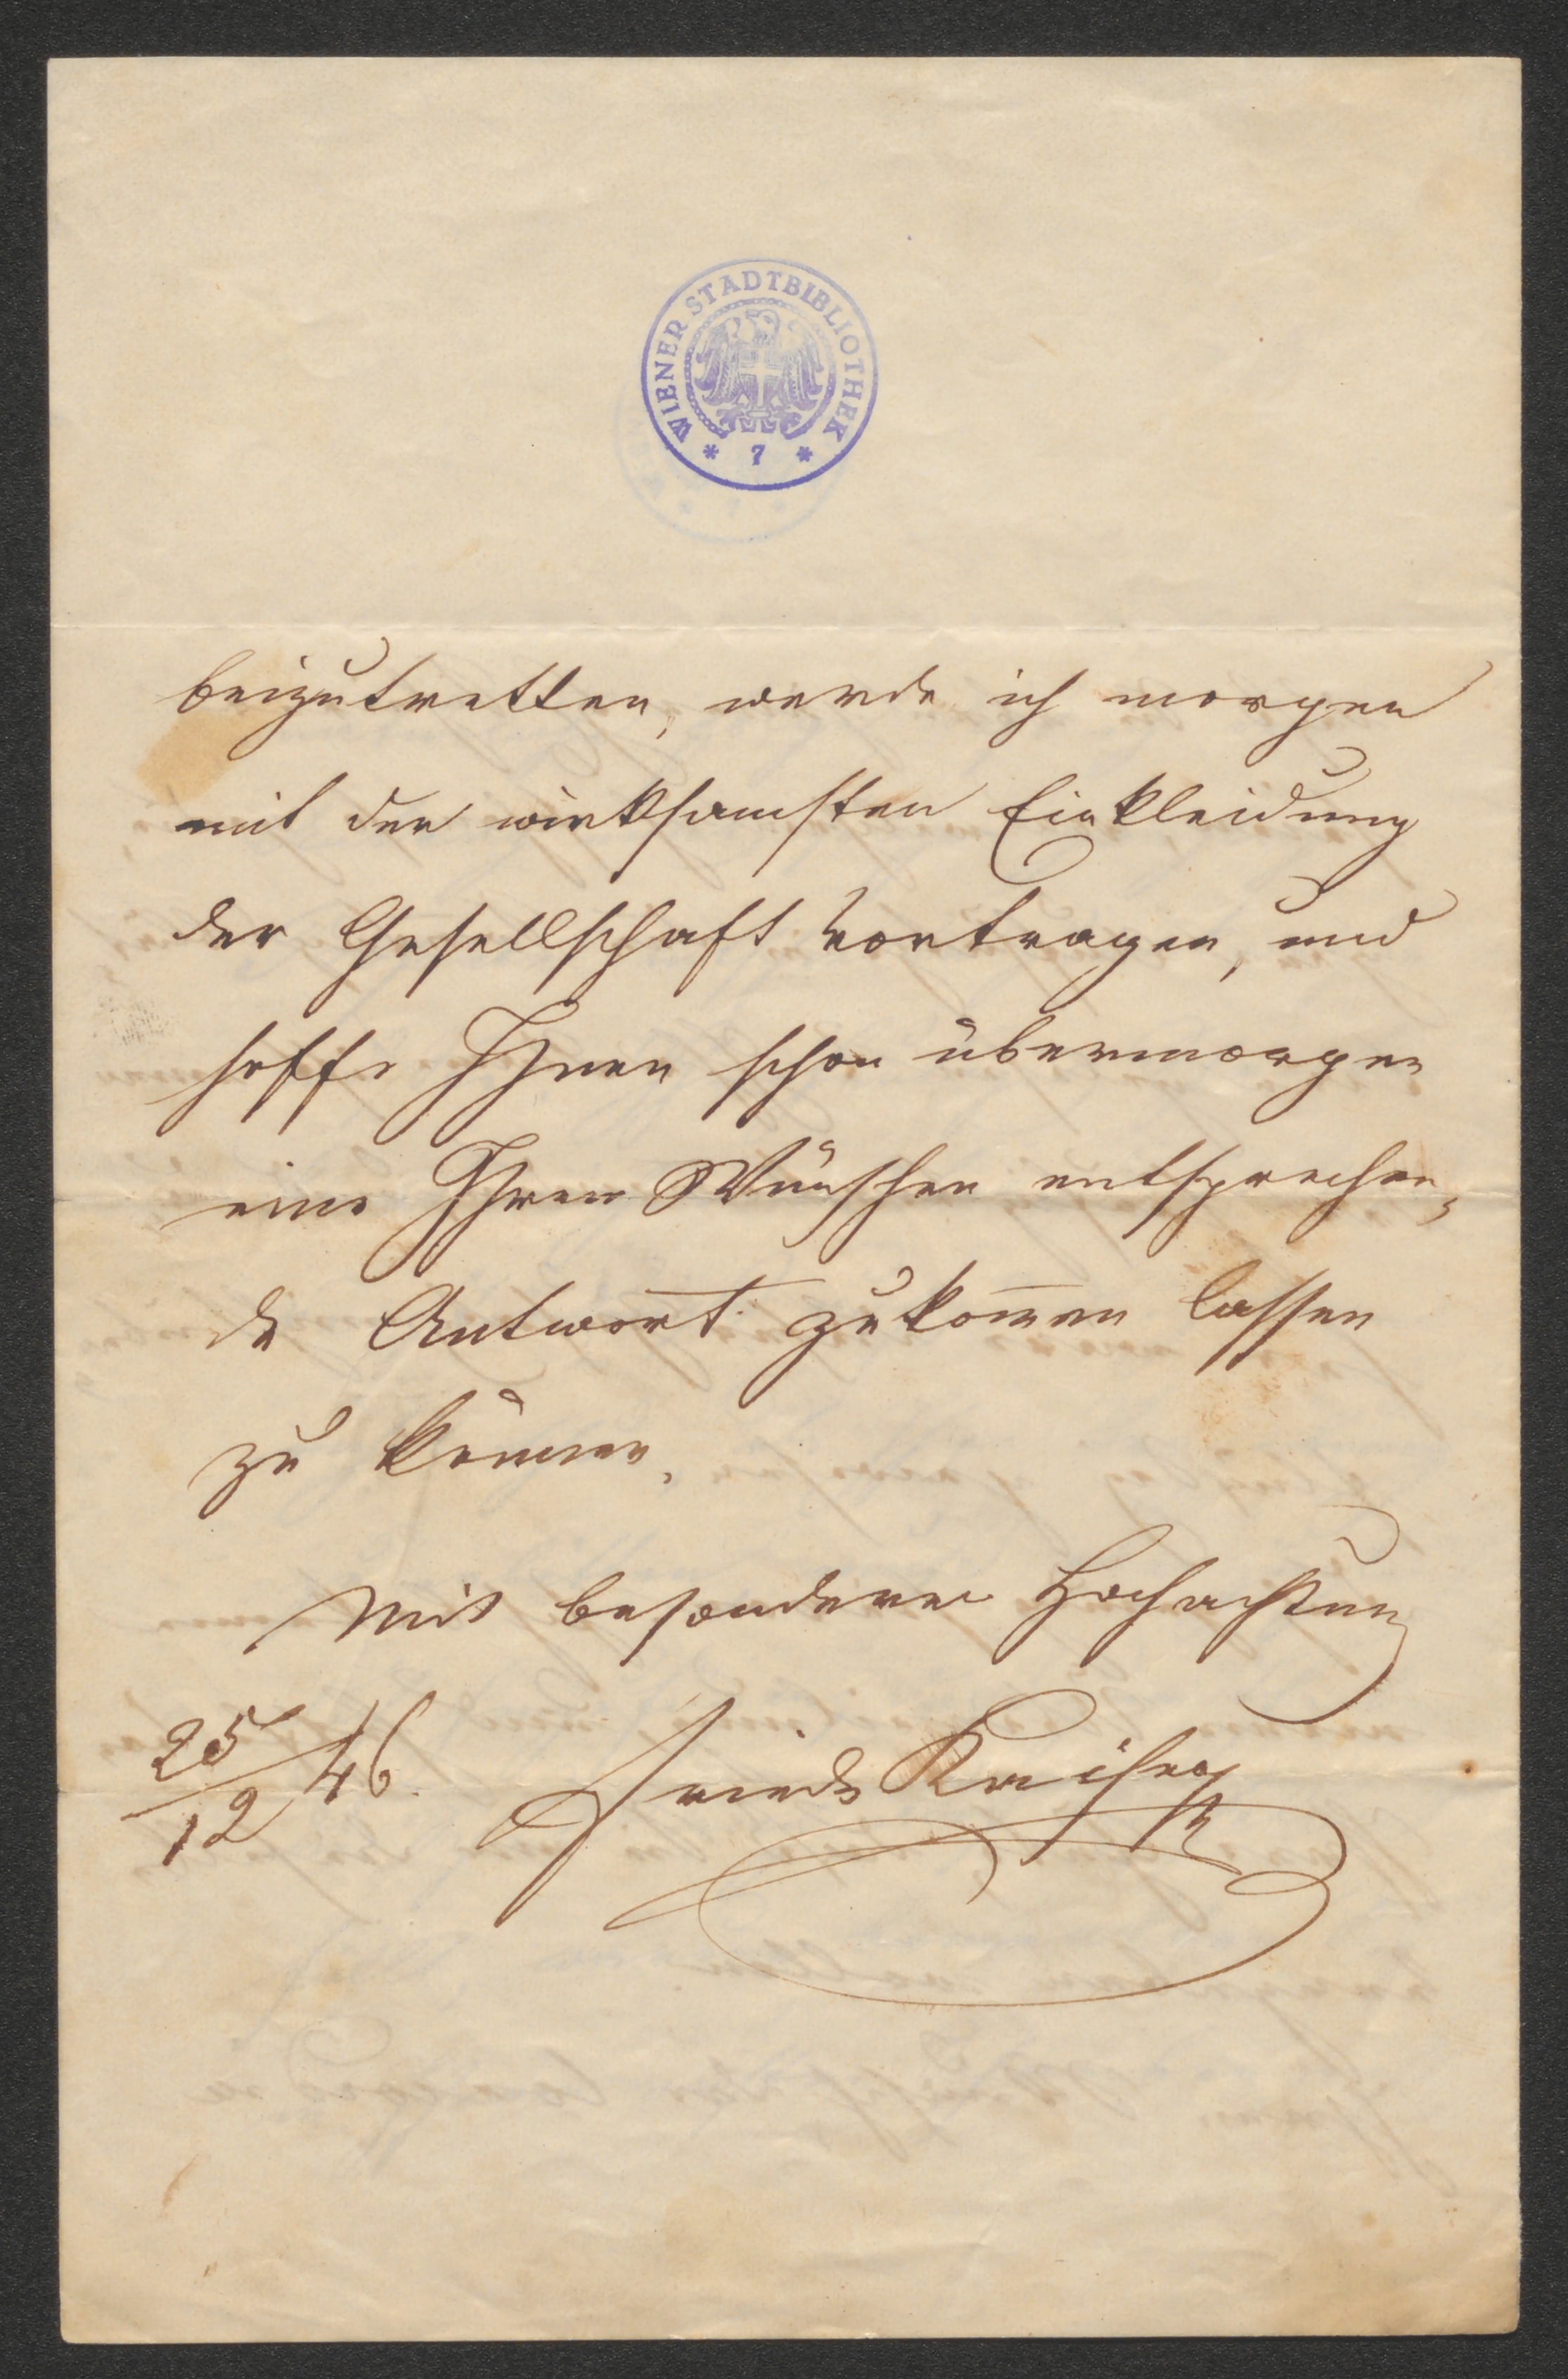 WIENER STADTBIBLIOTHEK
* 7 *
beizutretten, werde ich morgen
mit der wirksamsten Einkleidung
der Gesellschaft vortragen, und
hoffe Ihnen schon übermorgen
eine Ihren Wünschen entsprechen„
de Antwort zukom̅en lassen
zu können.
Mit besonderer Hochachtung
25/12 46. Friedr Kaiser